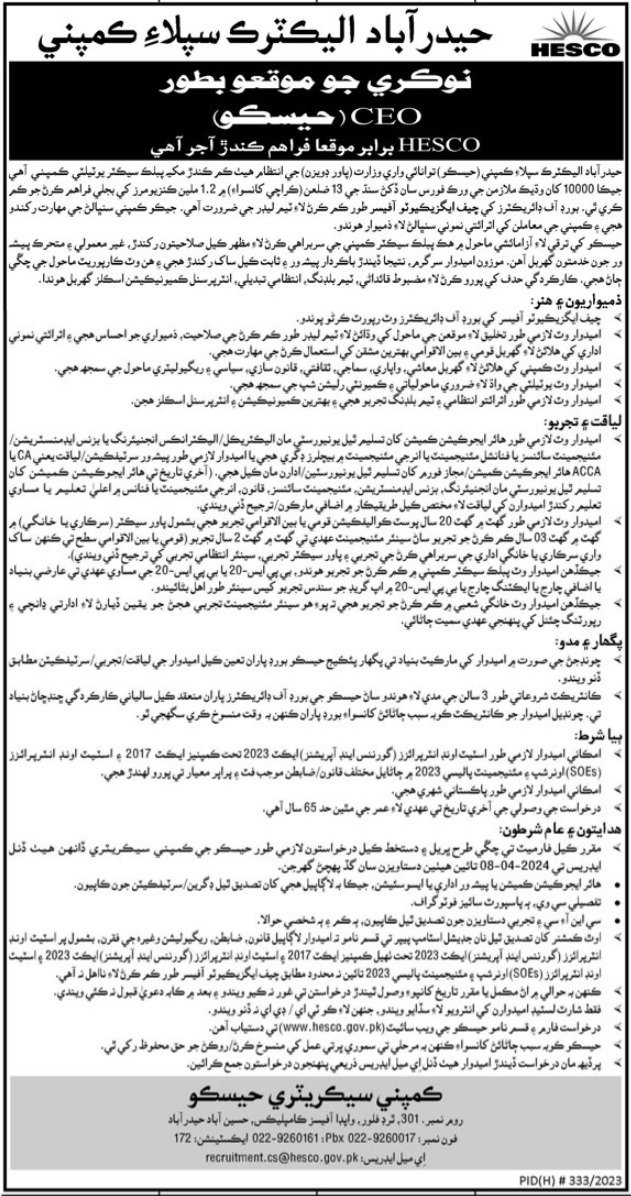 حيدرآباد اليڪٽرڪ سپلاءِ ڪمپني
HESCO
نوڪري جو موقعو بطور
CEO (حيسڪو)
HESCO برابر موقعا فراهم ڪندڙ آجر آهي
حيدرآباد اليڪٽرڪ سپلاءِ ڪمپني (حيسڪو) توانائي واري وزارت (پاور ڊويزن) جي انتظام هيٺ ڪم ڪندڙ مکيه پبلڪ سيڪٽر يوٽيلٽي ڪمپني آهي
جيڪا 10000 کان وڌيڪ ملازمن جي ورڪ فورس سان ڏکڻ سنڌ جي 13 ضلعن (ڪراچي کانسواءِ) ۾ 1.2 ملين کنزيومرز کي بجلي فراهم ڪرڻ جو ڪم
ڪري ٿي. بورڊ آف ڊائريڪٽرز کي چيف ايگزيڪيوٽو آفيسر طور ڪم ڪرڻ لاءِ ٽيم ليڊر جي ضرورت آهي. جيڪو ڪمپني سنڀالڻ جي مهارت رکندو
هجي ۽ ڪمپني جي معاملن کي اثرائتي نموني سنڀالڻ لاءِ ذميوار هوندو.
حيسڪو کي ترقي لاءِ آزمائشي ماحول ۾ هڪ پبلڪ سيڪٽر ڪمپني جي سربراهي ڪرڻ لاءِ مظهر ڪيل صلاحيتون رکندڙ، غير معمولي ۽ متحرڪ پيشه
ور جون خدمتون گهربل آهن. موزون اميدوار سرگرم، نتيجا ڏيندڙ باڪردار پيشه ور ۽ ثابت ڪيل ساک رکندڙ هجي ۽ هن وٽ ڪارپوريٽ ماحول جي چڱي
ڄاڻ هجي. ڪارڪردگي حدف کي پورو ڪرڻ لاءِ مضبوط قائداڻي، ٽيم بلڊنگ، انتظامي تبديلي، انٽرپرسنل ڪميونيڪيشن اسڪلز گهربل هوندا.
ذميواريون ۽ هنر:
چيف ايگزيڪيوٽو آفيسر کي بورڊ آف ڊائريڪٽرز وٽ رپورٽ ڪرڻو پوندو.
اميدوار وٽ لازمي طور تخليق لاءِ موقعن جي ماحول کي وڌائڻ لاءِ ٽيم ليڊر طور ڪم ڪرڻ جي صلاحيت، ذميواري جو احساس هجي ۽ اثرائتي نموني
اداري کي هلائڻ لاءِ گهربل قومي ۽ بين الاقوامي بهترين مشقن کي استعمال ڪرڻ جي مهارت هجي.
اميدوار وٽ ڪمپني کي هلائڻ لاءِ گهربل معاشي، واپاري، سماجي، ثقافتي، قانون سازي، سياسي ۽ ريگيوليٽري ماحول جي سمجهه هجي.
اميدوار وٽ يوٽيلٽي جي واڌ لاءِ ضروري ماحولياتي ۽ ڪميونٽي رليشن شپ جي سمجهه هجي.
اميدوار وٽ لازمي طور اثرائتو انتظامي ۽ ٽيم بلڊنگ تجربو هجي ۽ بهترين ڪميونيڪيشن ۽ انٽرپرسنل اسڪلز هجن.
لياقت ۽ تجربو:
اميدوار وٽ لازمي طور هائر ايجوڪيشن ڪميشن کان تسليم ٿيل يونيورسٽي مان اليڪٽريڪل/اليڪٽرانڪس انجنيئرنگ يا بزنس ايڊمنسٽريشن/
مئنيجمينٽ سائنسز يا فنانشل مئنيجمينٽ يا انرجي مئنيجمينٽ ۾ بيچلرز ڊگري هجي يا اميدوار لازمي طور پيشه ور سرٽيفڪيشن/لياقت يعني CA يا
ACCA هائر ايجوڪيشن ڪميشن/مجاز فورم کان تسليم ٿيل يونيورسٽين/ادارن مان ڪيل هجي. (آخري تاريخ تي هائر ايجوڪيشن ڪميشن کان
تسليم ٿيل يونيورسٽي مان انجنيئرنگ، بزنس ايڊمنسٽريشن، مئنيجمينٽ سائنسز، قانون، انرجي مئنيجمينٽ يا فنانس ۾ اعليٰ تعليم يا مساوي
تعليم رکندڙ اميدوارن کي لياقت لاءِ مختص ڪيل طريقيڪار ۾ اضافي مارڪون/ترجيح ڏني ويندي.
اميدوار وٽ لازمي طور گهٽ ۾ گهٽ 20 سال پوسٽ ڪواليفڪيشن قومي يا بين الاقوامي تجربو هجي بشمول پاور سيڪٽر (سرڪاري يا خانگي) ۾
گهٽ ۾ گهٽ 03 سال ڪم ڪرڻ جو تجربو ساڻ سينئر مئنيجمينٽ عهدي تي گهٽ ۾ گهٽ 2 سال تجربو (قومي يا بين الاقوامي سطح تي ڪنهن ساک
واري سرڪاري يا خانگي اداري جي سربراهي ڪرڻ جي تجربي ۽ پاور سيڪٽر تجربي، سينئر انتظامي تجربي کي ترجيح ڏني ويندي).
جيڪڏهن اميدوار وٽ پبلڪ سيڪٽر ڪمپني ۾ ڪم ڪرڻ جو تجربو هوندو، بي پي ايس-20 يا بي پي ايس-20 جي مساوي عهدي تي عارضي بنياد
يا اضافي چارج يا ايڪٽنگ چارج يا بي پي ايس-20 ۾ اپ گريڊ جو سندس تجربو ڪيس سينئر طور اهل بڻائيندو.
جيڪڏهن اميدوار وٽ خانگي شعبي ۾ ڪم ڪرڻ جو تجربو هجي ته پوءِ هو سينئر مئنيجمينٽ تجربي هجڻ جو يقين ڏيارڻ لاءِ ادارتي ڍانچي ۽
رپورٽنگ چئنل کي پنهنجي عهدي سميت ڄاڻائي.
پگهار ۽ مدو:
چونڊجڻ جي صورت ۾ اميدوار کي مارڪيٽ بنياد تي پگهار پئڪيج حيسڪو بورڊ پاران تعين ڪيل اميدوار جي لياقت/تجربي/سرٽيفڪيٽن مطابق
ڏنو ويندو.
ڪانٽريڪٽ شروعاتي طور 3 سالن جي مدي لاءِ هوندو ساڻ حيسڪو جي بورڊ آف ڊائريڪٽرز پاران منعقد ڪيل سالياني ڪارڪردگي ڇنڊڇاڻ بنياد
تي. چونڊيل اميدوار جو ڪانٽريڪٽ ڪوبه سبب ڄاڻائڻ کانسواءِ بورڊ پاران ڪنهن به وقت منسوخ ڪري سگهجي ٿو.
ٻيا شرط:
امڪاني اميدوار لازمي طور اسٽيٽ اونڊ انٽرپرائزز (گورننس اينڊ آپريشنز) ايڪٽ 2023 تحت ڪمپنيز ايڪٽ 2017 ۽ اسٽيٽ اونڊ انٽرپرائزز
(SOEs) اونرشپ ۽ مئنيجمينٽ پاليسي 2023 ۾ ڄاڻايل مختلف قانون/ضابطن موجب فٽ ۽ پراپر معيار تي پورو لهندڙ هجي.
امڪاني اميدوار لازمي طور پاڪستاني شهري هجي.
درخواست جي وصولي جي آخري تاريخ تي عهدي لاءِ عمر جي مٿين حد 65 سال آهي.
هدايتون ۽ عام شرطون:
مقرر ڪيل فارميٽ تي چڱي طرح ڀريل ۽ دستخط ڪيل درخواستون لازمي طور حيسڪو جي ڪمپني سيڪريٽري ڏانهن هيٺ ڏنل
ايڊريس تي 08-04-2024 تائين هيٺين دستاويزن سان گڏ پهچڻ گهرجن.
هائر ايجوڪيشن ڪميشن يا پيشه ور اداري يا ايسوسئيشن، جيڪا به لاڳاپيل هجي کان تصديق ٿيل ڊگرين/سرٽيفڪيٽن جون ڪاپيون.
تفصيلي سي وي، ٻه پاسپورٽ سائيز فوٽوگراف.
سي اين آءِ سي ۽ تجربي دستاويزن جون تصديق ٿيل ڪاپيون، ٻه ڪم ۽ ٻه شخصي حوالا.
اوٿ ڪمشنر کان تصديق ٿيل نان جڊيشل اسٽامپ پيپر تي قسم نامو ته اميدوار لاڳاپيل قانون، ضابطن، ريگيوليشن وغيره جي فقرن، بشمول پر اسٽيٽ اونڊ
انٽرپرائزز (گورننس اينڊ آپريشنز) ايڪٽ 2023 تحت ٺهيل ڪمپنيز ايڪٽ 2017 ۽ اسٽيٽ اونڊ انٽرپرائزز (گورننس اينڊ آپريشنز) ايڪٽ 2023 ۽ اسٽيٽ
اونڊ انٽرپرائزز (SOEs) اونرشپ ۽ مئنيجمينٽ پاليسي 2023 تائين نه محدود مطابق چيف ايگزيڪيوٽو آفيسر طور ڪم ڪرڻ لاءِ نااهل نه آهي.
ڪنهن به حوالي ۾ اڻ مڪمل يا مقرر تاريخ کانپوءِ وصول ٿيندڙ درخواستن تي غور نه ڪيو ويندو ۽ بعد ۾ ڪابه دعويٰ قبول نه ڪئي ويندي.
فقط شارٽ لسٽيڊ اميدوارن کي انٽرويو لاءِ سڏايو ويندو، جنهن لاءِ ڪو ٽي اي/ڊي اي نه ڏنو ويندو.
درخواست فارم ۽ قسم نامو حيسڪو جي ويب سائيٽ (www.hesco.gov.pk) تي دستياب آهن.
حيسڪو ڪوبه سبب ڄاڻائڻ کانسواءِ ڪنهن به مرحلي تي سموري ڀرتي عمل کي منسوخ ڪرڻ/روڪڻ جو حق محفوظ رکي ٿي.
پرڏيهه مان درخواست ڏيندڙ اميدوار هيٺ ڏنل اي ميل ايڊريس ذريعي پنهنجون درخواستون جمع ڪرائين.
ڪمپني سيڪريٽري حيسڪو
روم نمبر. 301، ٿرڊ فلور، واپڊا آفيسز ڪامپليڪس، حسين آباد حيدرآباد
فون نمبر: 022-9260017 Pbx: 022-9260161 ايڪسٽينشن: 172
اي ميل ايڊريس: recruitment.cs@hesco.gov.pk
PID(H) # 333/2023